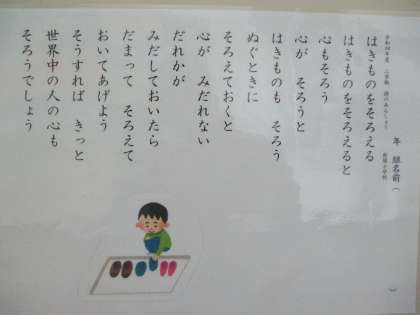 令和四年度 二学期 詩のあんしょう
はきものをそろえる
年 組 名前( )
はきものをそろえると
心もそろう
心が そろうと
はきものも そろう
ぬぐときに
そろえておくと
心が みだれない
だれかが
みだしておいたら
だまって そろえて
おいてあげよう
そうすれば きっと
世界中の人の心も
そろうでしょう